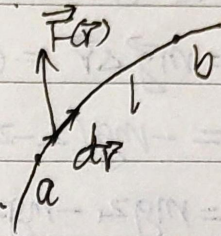 F⃗(r⃗)
b
l
dr⃗
a